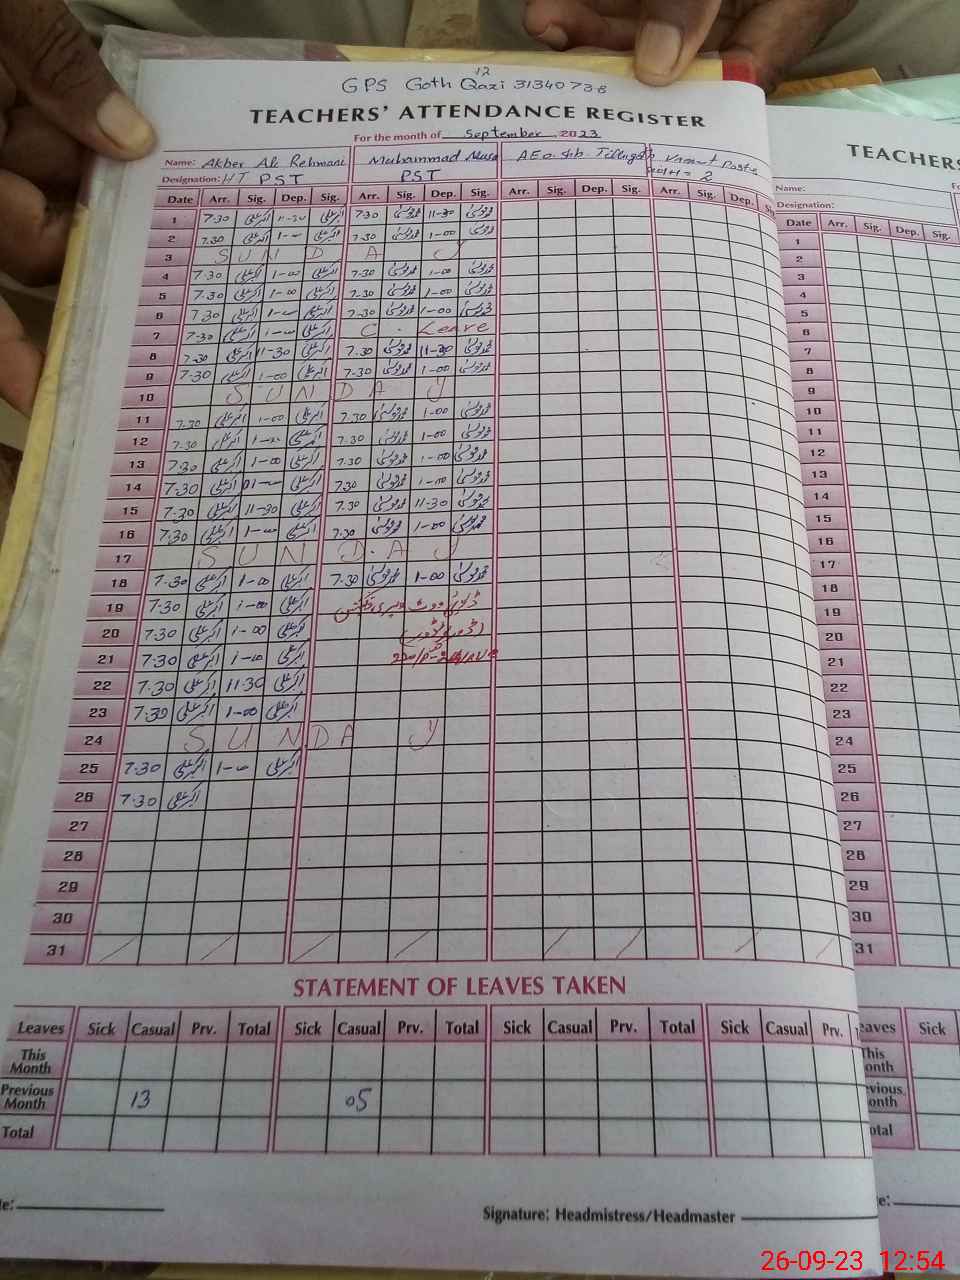 12
GPS Goth Qazi 31340738
TEACHERS' ATTENDANCE REGISTER
For the month of September, 2023
Name: Akber Ali Rehmani Muhammad Musa AEo.
Designation: HT PST PST
Date Arr. Sig. Dep. Sig. Arr. Sig. Dep. Sig. Arr. Sig. Dep. Sig. Arr. Sig. Dep. Sig.
1 7.30 اکبر علی 11-30 اکبر علی 7.30 محمد موسیٰ 11-30 محمد موسیٰ
2 7.30 اکبر علی 1-00 اکبر علی 7.30 محمد موسیٰ 1-00 محمد موسیٰ
3 S U N D A Y
4 7.30 اکبر علی 1-00 اکبر علی 7.30 محمد موسیٰ 1-00 محمد موسیٰ
5 7.30 اکبر علی 1-00 اکبر علی 7.30 محمد موسیٰ 1-00 محمد موسیٰ
6 7.30 اکبر علی 1-00 اکبر علی 7.30 محمد موسیٰ 1-00 محمد موسیٰ
7 7.30 اکبر علی 1-00 اکبر علی C. Leave
8 7.30 اکبر علی 11-30 اکبر علی 7.30 محمد موسیٰ 11-30 محمد موسیٰ
9 7.30 اکبر علی 1-00 اکبر علی 7.30 محمد موسیٰ 1-00 محمد موسیٰ
10 S U N D A Y
11 7.30 اکبر علی 1-00 اکبر علی 7.30 محمد موسیٰ 1-00 محمد موسیٰ
12 7.30 اکبر علی 1-00 اکبر علی 7.30 محمد موسیٰ 1-00 محمد موسیٰ
13 7.30 اکبر علی 1-00 اکبر علی 7.30 محمد موسیٰ 1-00 محمد موسیٰ
14 7.30 اکبر علی 01-00 اکبر علی 7.30 محمد موسیٰ 1-00 محمد موسیٰ
15 7.30 اکبر علی 11-30 اکبر علی 7.30 محمد موسیٰ 11-30 محمد موسیٰ
16 7.30 اکبر علی 1-00 اکبر علی 7.30 محمد موسیٰ 1-00 محمد موسیٰ
17 S U N D A Y
18 7.30 اکبر علی 1-00 اکبر علی 7.30 محمد موسیٰ 1-00 محمد موسیٰ
19 7.30 اکبر علی 1-00 اکبر علی
20 7.30 اکبر علی 1-00 اکبر علی
21 7.30 اکبر علی 1-00 اکبر علی
22 7.30 اکبر علی 11.30 اکبر علی
23 7.30 اکبر علی 1-00 اکبر علی
24 S U N D A Y
25 7.30 اکبر علی 1-00 اکبر علی
26 7.30 اکبر علی
27
28
29
30
31
STATEMENT OF LEAVES TAKEN
Leaves Sick Casual Prv. Total Sick Casual Prv. Total Sick Casual Prv. Total Sick Casual Prv.
This Month
Previous Month 13 05
Total
Signature: Headmistress/Headmaster
TEACHERS
Name:
Designation:
Date Arr. Sig. Dep. Sig.
1
2
3
4
5
6
7
8
9
10
11
12
13
14
15
16
17
18
19
20
21
22
23
24
25
26
27
28
29
30
31
eaves Sick
This
onth
vious
onth
otal
26-09-23 12:54